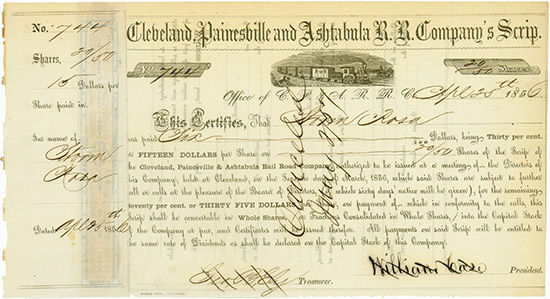 No. 744
Shares, 20/50
15 Dollars per
Share paid in.
In name of
Storm
Rosa
Dated Apl 25th 1856
Cleveland, Painesville and Ashtabula R. R. Company's Scrip.
No. 744
20/50 Shares
Office of C. P. & A. R. R. Co. Apl 25th 1856
This Certifies, That Storm Rosa
has paid Six
Dollars, being Thirty per cent.
or FIFTEEN DOLLARS per Share on 20/50 Shares of the Scrip of
the Cleveland, Painesville & Ashtabula Rail Road Company, authorized to be issued at a meeting of the Directors of
this Company, held at Cleveland, on the day of March, 1856, which said Shares are subject to further
call or calls at the pleasure of the Board of Directors, (of which sixty days notice will be given), for the remaining
seventy per cent. or THIRTY FIVE DOLLARS on, and on payment of which in conformity to the calls, this
Scrip shall be convertable in Whole Shares, (or Fractions Consolidated in Whole Shares,) into the Capital Stock
of the Company at par, and Certificates will be issued therefor. All payments on said Scrip will be entitled to
the same rate of Dividends as shall be declared on the Capital Stock of this Company.
Cancelled
Treasurer.
William Case President.